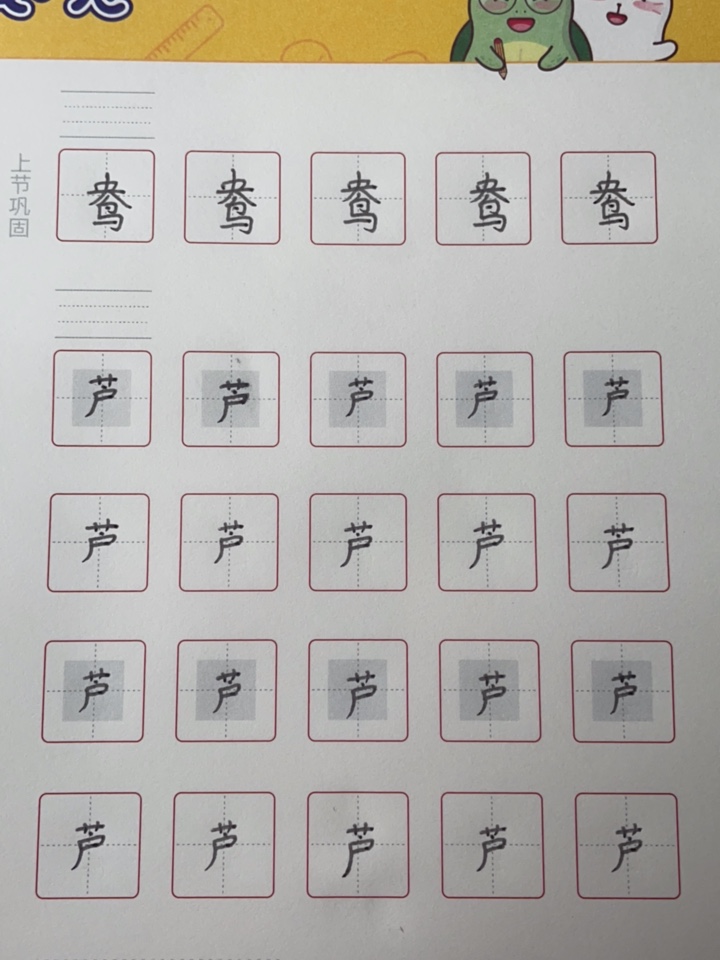 上节巩固
鸯 鸯 鸯 鸯 鸯
芦 芦 芦 芦 芦
芦 芦 芦 芦 芦
芦 芦 芦 芦 芦
芦 芦 芦 芦 芦